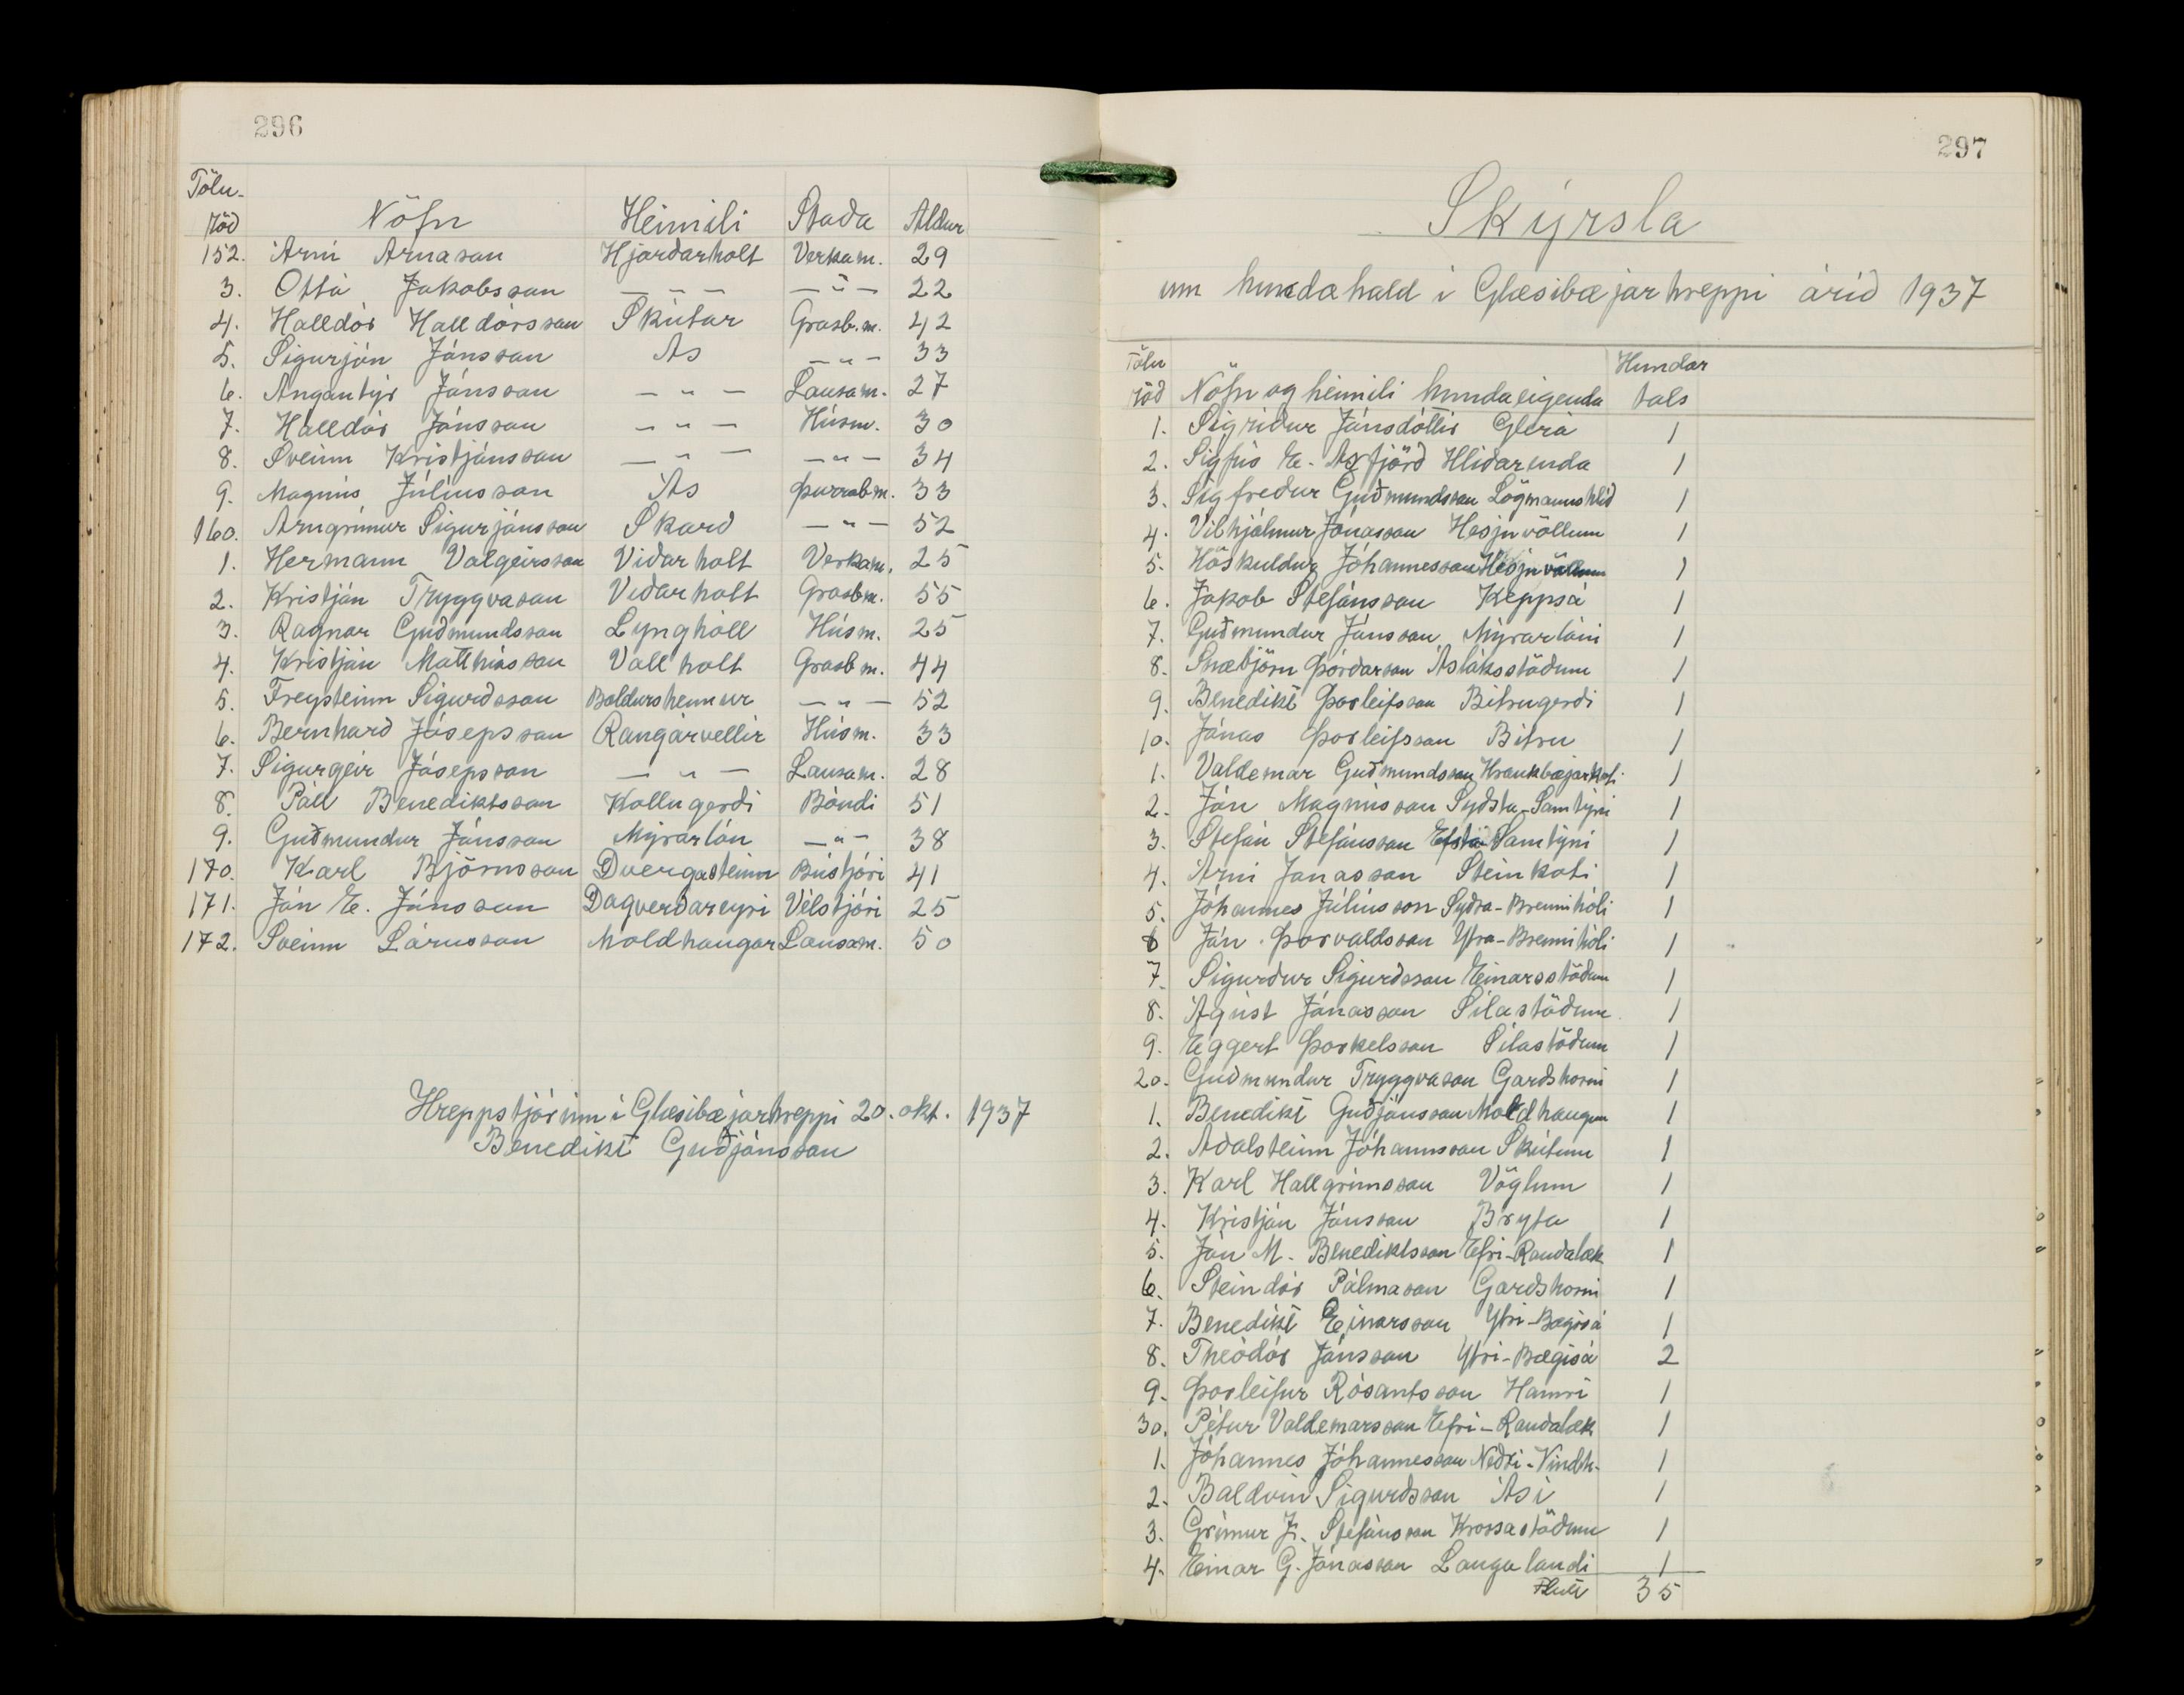 296
Tölu-
röð Nöfn Heimili Staða Aldur
152. Árni Árnason Hjarðarholt Verkam. 29
3. Ottó Jakobsson — " — — " — 22
4. Halldór Halldórsson Skútar Grasb.m. 42
5. Sigurjón Jónsson Ás — " — 33
6. Angantýr Jónsson — " — Lausam. 27
7. Halldór Jónsson — " — Húsm. 30
8. Sveinn Kristjánsson — " — — " — 34
9. Magnús Júlíusson Ás Þurrabm. 33
160. Arngrímur Sigurjónsson Skarð — " — 52
1. Hermann Valgeirsson Viðarholt Verkam. 25
2. Kristján Tryggvason Viðarholt Grasbm. 55
3. Ragnar Guðmundsson Lynghóll Húsm. 25
4. Kristján Matthíasson Vallholt Grasbm. 44
5. Freysteinn Sigurðsson Baldursheimur — " — 52
6. Bernharð Jósepsson Rangárvellir Húsm. 33
7. Sigurgeir Jósepsson — " — Lausam. 28
8. Páll Benediktsson Kollugerði Bóndi 51
9. Guðmundur Jónsson Mýrarlón — " — 38
170. Karl Björnsson Dvergasteinn Bústjóri 41
171. Jón E. Jónsson Dagverðareyri Vélstjóri 25
172. Sveinn Lárusson Moldhaugar Lausam. 50
Hreppstjórinn í Glæsibæjarhreppi 20. okt. 1937
Benedikt Guðjónsson
297
Skýrsla
um hundahald í Glæsibæjarhreppi árið 1937
Tölu Hundar
röð Nöfn og heimili hundaeigenda tals
1. Sigríður Jónsdóttir Glerá 1
2. Sigfús E. Axfjörð Hlíðarenda 1
3. Sigfreður Guðmundsson Lögmannshlíð 1
4. Vilhjálmur Jónasson Hesjuvöllum 1
5. Höskuldur Jóhannesson Hesjuvöllum 1
6. Jakob Stefánsson Keppsá 1
7. Guðmundur Jónsson Mýrarlóni 1
8. Snæbjörn Þórðarson Ásláksstöðum 1
9. Benedikt Þorleifsson Bitrugerði 1
10. Jónas Þorleifsson Bitru 1
1. Valdemar Guðmundsson Kraukbæjarkoti 1
2. Jón Magnússon Syðsta-Samtýni 1
3. Stefán Stefánsson Efsta Samtýni 1
4. Árni Jónasson Steinkoti 1
5. Jóhannes Júlíusson Syðra-Brennihóli 1
6 Jón Þorvaldsson Ytra-Brennihóli 1
7. Sigurður Sigurðsson Einarsstöðum 1
8. Ágúst Jónasson Sílastöðum 1
9. Eggert Þorkelsson Sílastöðum 1
20. Guðmundur Tryggvason Garðshorni 1
1. Benedikt Guðjónsson Moldhaugum 1
2. Aðalsteinn Jóhannsson Skútum 1
3. Karl Hallgrímsson Vöglum 1
4. Kristján Jónsson Bryta 1
5. Jón M. Benediktsson Efri-Rauðalæk 1
6. Steindór Pálmason Garðshorni 1
7. Benedikt Einarsson Ytri-Bægisá 1
8. Theódór Jónsson Ytri-Bægisá 2
9. Þorleifur Rósantsson Hamri 1
30. Pétur Valdemarsson Efri-Rauðalæk 1
1. Jóhannes Jóhannesson Neðri-Vindh. 1
2. Baldvin Sigurðsson Ási 1
3. Grímur J. Stefánsson Krossastöðum 1
4. Einar G. Jónasson Laugalandi 1
Flutt 35